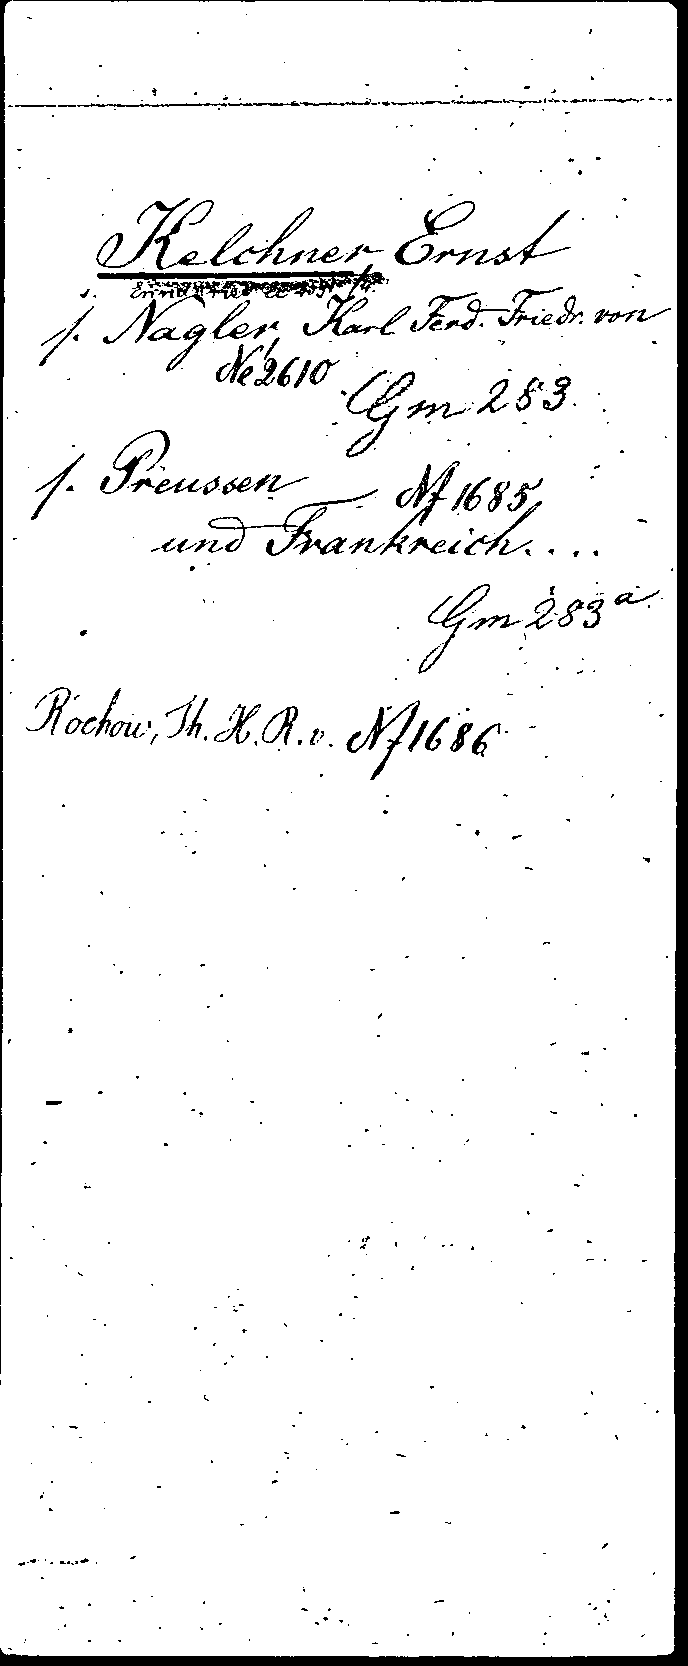 Kelchner Ernst
s. Nagler, Karl Ferd. Friedr. von
Ne 2610
Gm 283.
s. Preussen Nf 1685
und Frankreich....
Gm 283 a
Rochow, Th. H. R. v. Nf 1686